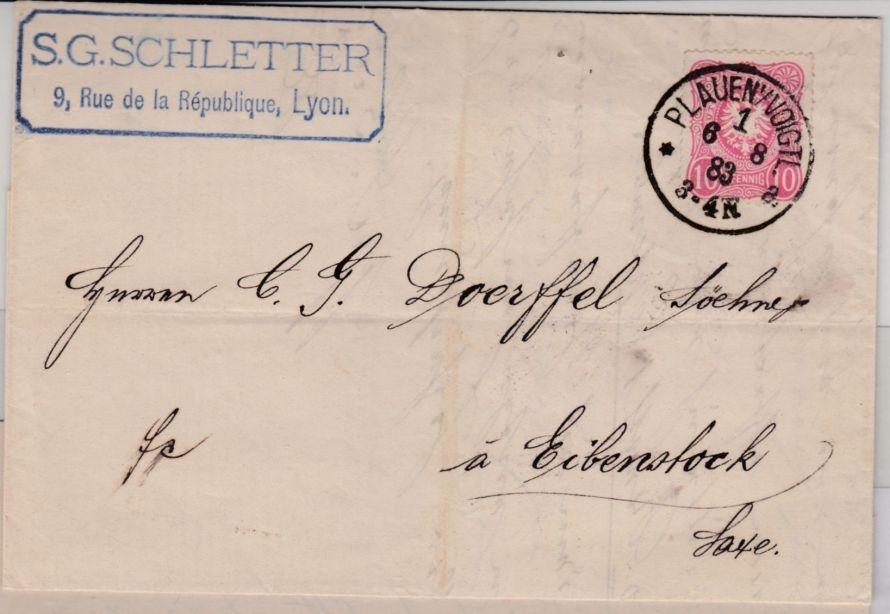 S.G. SCHLETTER
9, Rue de la République, Lyon.
PLAUEN i/VOIGTL.
1
6 8
83
3-4N
10 PFENNIG 10
Herren C. G. Doerffel Soehne
à Eibenstock
Saxe.